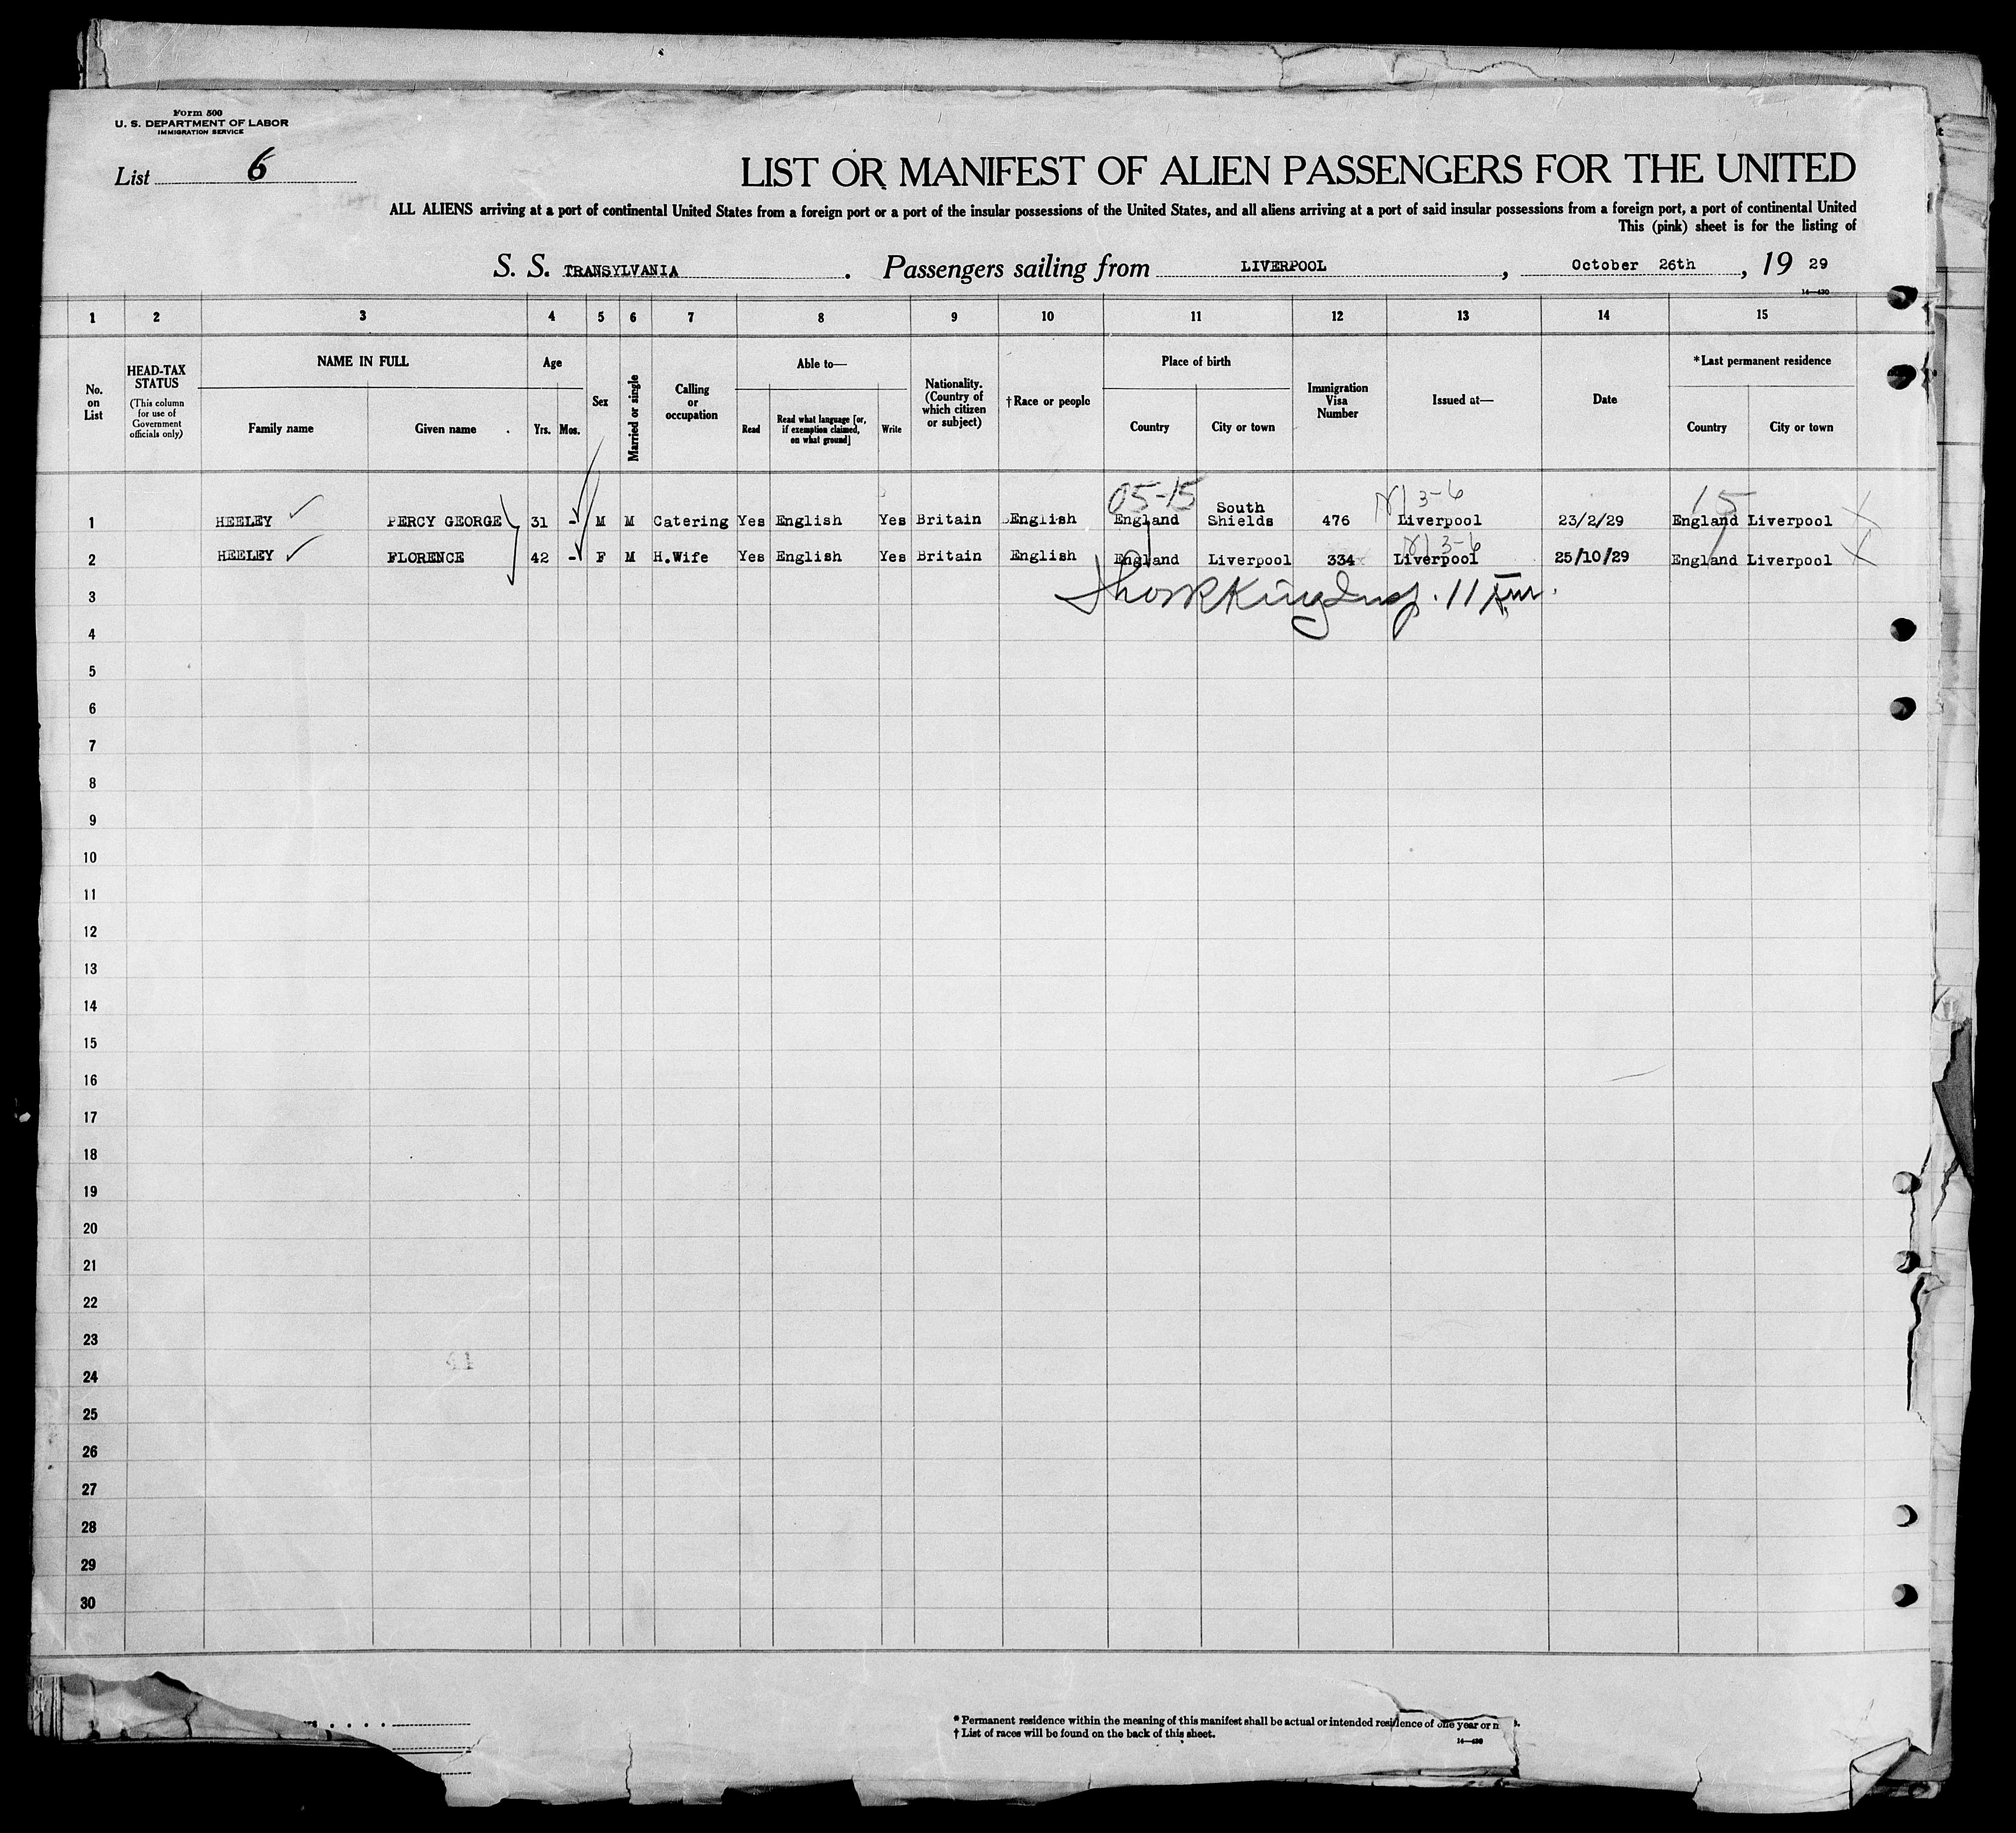 Form 500
U. S. DEPARTMENT OF LABOR
IMMIGRATION SERVICE
List 6
LIST OR MANIFEST OF ALIEN PASSENGERS FOR THE UNITED
ALL ALIENS arriving at a port of continental United States from a foreign port or a port of the insular possessions of the United States, and all aliens arriving at a port of said insular possessions from a foreign port, a port of continental United
This (pink) sheet is for the listing of
S. S. TRANSYLVANIA . Passengers sailing from LIVERPOOL , October 26th , 19 29
14—430
1 2 3 4 5 6 7 8 9 10 11 12 13 14 15
No. on List
HEAD-TAX STATUS
(This column for use of Government officials only)
NAME IN FULL
Family name Given name
Age
Yrs. Mos.
Sex
Married or single
Calling or occupation
Able to—
Read
Read what language [or, if exemption claimed, on what ground]
Write
Nationality. (Country of which citizen or subject)
†Race or people
Place of birth
Country City or town
Immigration Visa Number
Issued at—
Date
*Last permanent residence
Country City or town
05-15 3-6 15
1 HEELEY PERCY GEORGE 31 - M M Catering Yes English Yes Britain English England South Shields 476 Liverpool 23/2/29 England Liverpool
3-6
2 HEELEY FLORENCE 42 - F M H.Wife Yes English Yes Britain English England Liverpool 334 Liverpool 25/10/29 England Liverpool
3
4
5
6
7
8
9
10
11
12
13
14
15
16
17
18
19
20
21
22
23
24
25
26
27
28
29
30
* Permanent residence within the meaning of this manifest shall be actual or intended residence of one year or
† List of races will be found on the back of this sheet.
14—430